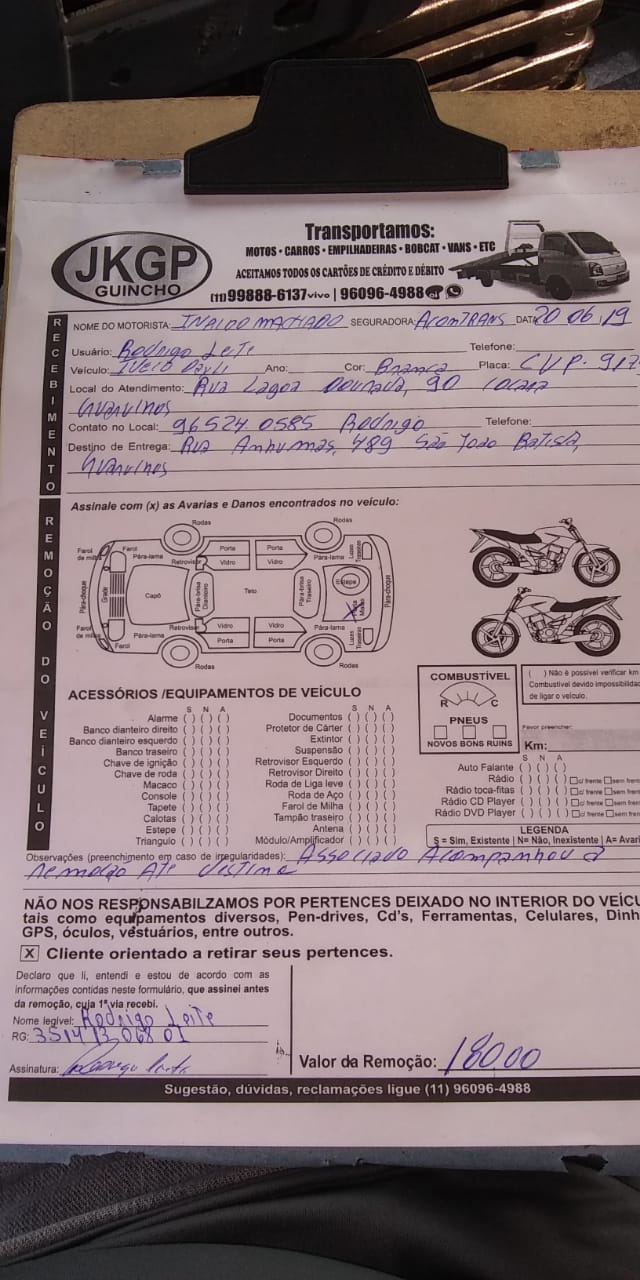 Transportamos:
MOTOS • CARROS • EMPILHADEIRAS • BOBCAT • VANS • ETC
JKGP
GUINCHO
ACEITAMOS TODOS OS CARTÕES DE CRÉDITO E DÉBITO
(11) 99888-6137 vivo | 96096-4988
RECEBIMENTO
NOME DO MOTORISTA: INALDO MACHADO SEGURADORA: AcomTRANS DATA 20 06 19
Usuário: Rodrigo Leite Telefone:
Veículo: IVECO Ano: Cor: Branca Placa: CVP-917
Local do Atendimento: Rua Lagoa Dourada, 90
Guarulhos
Contato no Local: 96524 0585 Rodrigo Telefone:
Destino de Entrega: Rua Anhumas, 489 São João Batista,
Guarulhos
REMOÇÃO DO VEÍCULO
Assinale com (x) as Avarias e Danos encontrados no veículo:
Rodas Rodas
Farol de milha Farol Pára-lama Retrovisor Porta Porta Pára-lama Luzes Traseiras
Vidro Vidro
Pára-choque Grade Capô Pára-brisa Dianteiro Teto Pára-brisa Traseiro Estepe Pára-choque
Porta Malas
Farol de milha Farol Pára-lama Retrovisor Vidro Vidro Pára-lama Luzes Traseiras
Porta Porta
Rodas Rodas
ACESSÓRIOS /EQUIPAMENTOS DE VEÍCULO
S N A S N A
Alarme ( ) ( ) ( ) Documentos ( ) ( ) ( )
Banco dianteiro direito ( ) ( ) ( ) Protetor de Cárter ( ) ( ) ( )
Banco dianteiro esquerdo ( ) ( ) ( ) Extintor ( ) ( ) ( )
Banco traseiro ( ) ( ) ( ) Suspensão ( ) ( ) ( )
Chave de ignição ( ) ( ) ( ) Retrovisor Esquerdo ( ) ( ) ( )
Chave de roda ( ) ( ) ( ) Retrovisor Direito ( ) ( ) ( )
Macaco ( ) ( ) ( ) Roda de Liga leve ( ) ( ) ( )
Console ( ) ( ) ( ) Roda de Aço ( ) ( ) ( )
Tapete ( ) ( ) ( ) Farol de Milha ( ) ( ) ( )
Calotas ( ) ( ) ( ) Tampão traseiro ( ) ( ) ( )
Estepe ( ) ( ) ( ) Antena ( ) ( ) ( )
Triangulo ( ) ( ) ( ) Módulo/Amplificador ( ) ( ) ( )
COMBUSTÍVEL
R C
PNEUS
NOVOS BONS RUINS
( ) Não é possivel verificar km
Combustível devido impossibilida
de ligar o veículo.
Favor preencher:
Km:
S N A
Auto Falante ( ) ( ) ( )
Rádio ( ) ( ) ( ) c/ frente sem fren
Rádio toca-fitas ( ) ( ) ( ) c/ frente sem fren
Rádio CD Player ( ) ( ) ( ) c/ frente sem fren
Rádio DVD Player ( ) ( ) ( ) c/ frente sem fren
LEGENDA
S = Sim, Existente | N= Não, Inexistente | A= Avari
Observações (preenchimento em caso de irregularidades): Associado Acompanhou a
remoção Até destino
NÃO NOS RESPONSABILZAMOS POR PERTENCES DEIXADO NO INTERIOR DO VEÍCU
tais como equipamentos diversos, Pen-drives, Cd's, Ferramentas, Celulares, Dinh
GPS, óculos, vestuários, entre outros.
X Cliente orientado a retirar seus pertences.
Declaro que li, entendi e estou de acordo com as
informações contidas neste formulário, que assinei antes
da remoção, cuja 1ª via recebi.
Nome legível: Rodrigo Leite
RG: 3514 13 068 01
Assinatura: Rodrigo Leite
Valor da Remoção: 180,00
Sugestão, dúvidas, reclamações ligue (11) 96096-4988